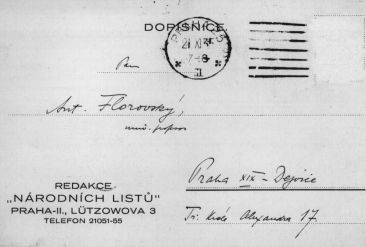 DOPISNICE
PRAHA 25
21 XI 35
7-8
II
Pan
Ant. Florovský,
univ. profesor
Praha XIX – Dejvice
Tř. krále Alexandra 17.
REDAKCE
„NÁRODNÍCH LISTŮ"
PRAHA-II., LÜTZOWOVA 3
TELEFON 21051-55